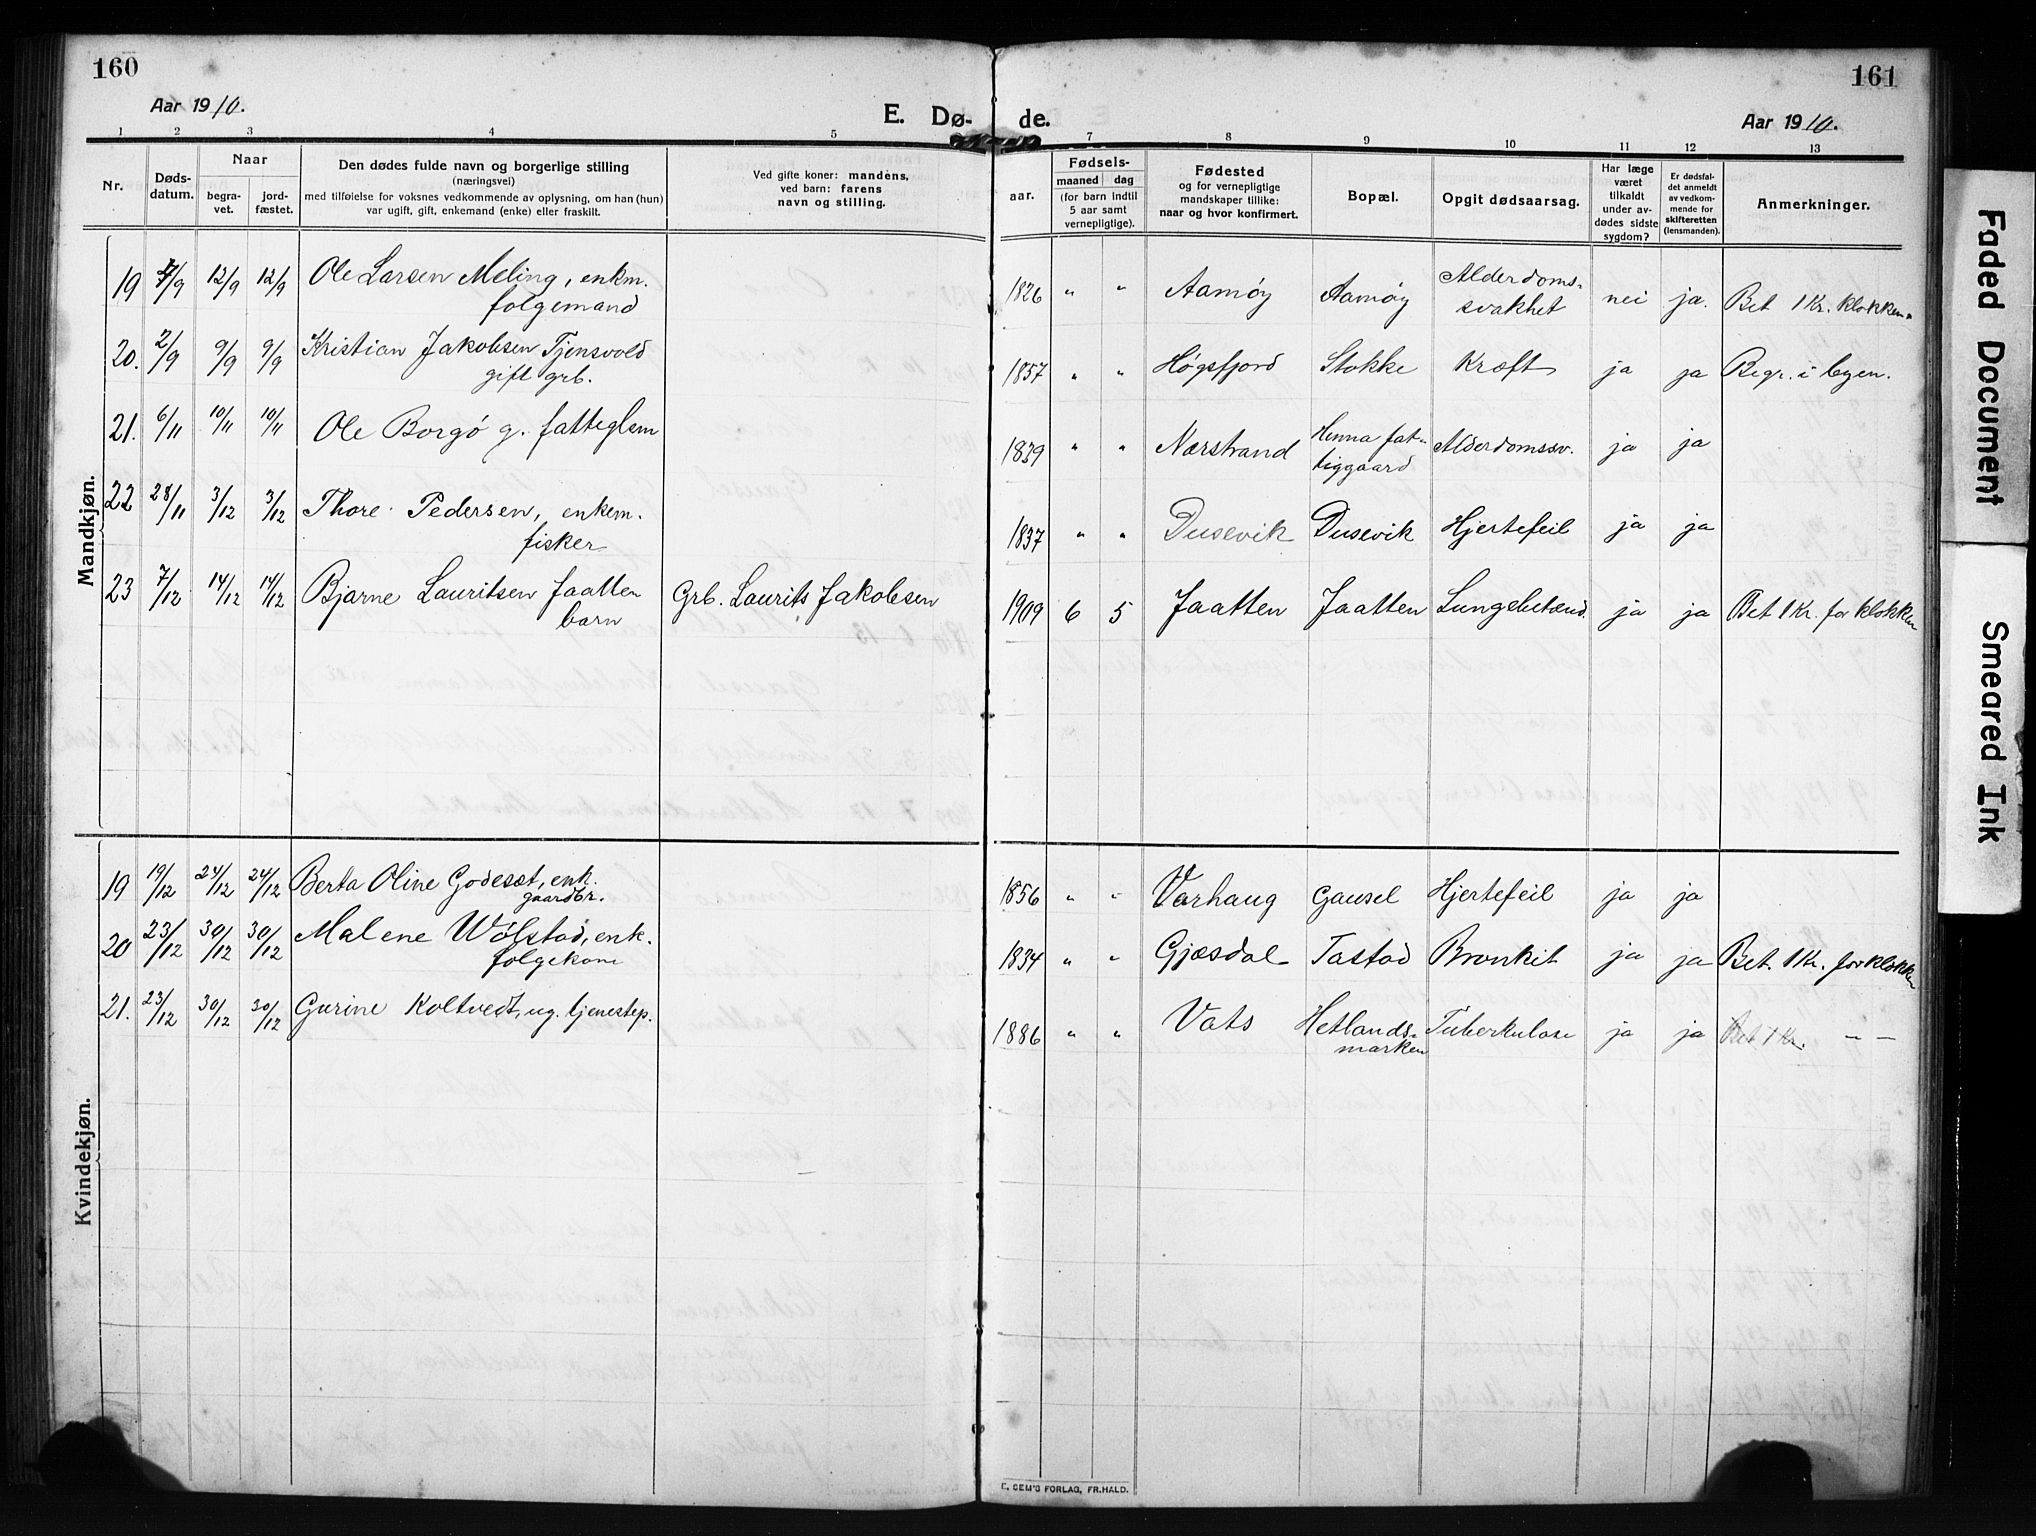 160
Aar 1910.
E. Dø-
1 2 3 4 5
Nr.
Døds-
datum.
Naar
begra-
vet.
jord-
fæstet.
Den dødes fulde navn og borgerlige stilling
(næringsvei)
med tilføielse for voksnes vedkommende av oplysning, om han (hun)
var ugift, gift, enkemand (enke) eller fraskilt.
Ved gifte koner: mandens,
ved barn: farens
navn og stilling.
Mandkjøn.
19 4/9 12/9 12/9 Ole Larsen Meling, enkm.
folgemand
20. 2/9 9/9 9/9 Kristian Jakobsen Tjensvold
gift grb.
21. 6/11 10/11 10/11 Ole Borgö g. fatteglem
22 28/11 3/12 3/12 Thore Pedersen, enkem.
fisker
23 7/12 14/12 14/12 Bjarne Lauritsen Jaatten Grb. Laurits Jakobsen
barn
Kvindekjøn.
19 19/12 24/12 24/12 Berta Oline Godeset, enk.
gaardbr.
20 23/12 30/12 30/12 Malene Wölstad, enk.
folgekone
21. 23/12 30/12 30/12 Gurine Koltvedt, ug. tjenestep.
161
de.
Aar 1910.
7 8 9 10 11 12 13
aar.
Fødsels-
maaned dag
(for barn indtil
5 aar samt
vernepligtige).
Fødested
og for vernepligtige
mandskaper tillike:
naar og hvor konfirmert.
Bopæl.
Opgit dødsaarsag.
Har læge
været
tilkaldt
under av-
dødes sidste
sygdom?
Er dødsfal-
det anmeldt
av vedkom-
mende for
skifteretten
(lensmanden).
Anmerkninger.
1826 " " Aamøy Aamøy Alderdoms-
svakhet nei ja. Bet 1 Kr. klokken.
1857 " " Høgsfjord Stokke Kræft ja ja Begr. i byen.
1839 " " Nærstrand Hinna fat-
tiggaard Alderdomssv. ja ja
1837 " " Dusevik Dusevik Hjertefeil ja ja
1909 6 5 Jaatten Jaatten Lungebetænd. ja ja Bet 1 Kr. for klokken
1856 " " Varhaug Gausel Hjertefeil ja ja
1834 " " Gjæsdal Tastad Bronkit ja ja Bet. 1 Kr. for klokken
1886 " " Vats Hetlands-
marken Tuberkulose ja ja Bet 1 Kr. — —
E. SEM'S FORLAG, FR.HALD.
Faded Document
Smeared Ink